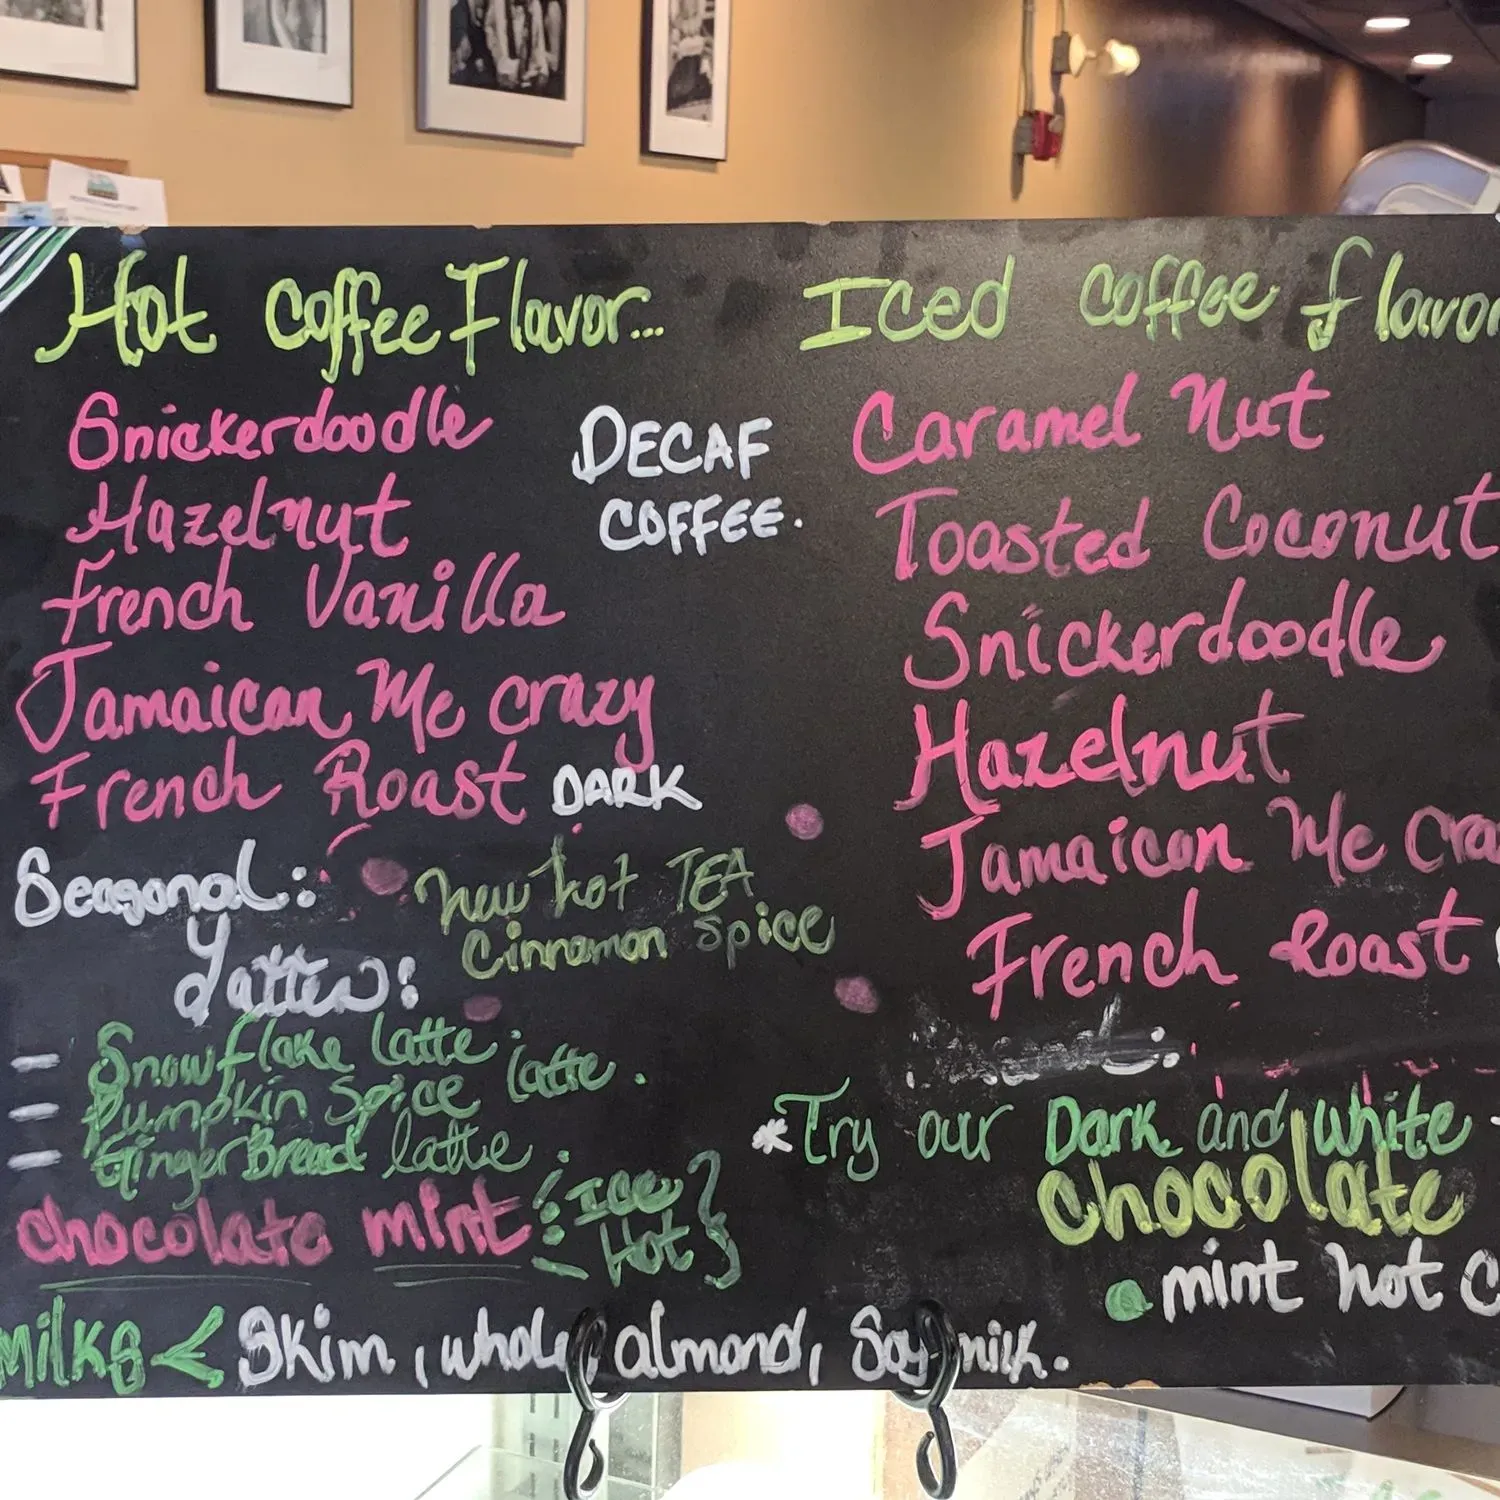 Hot Coffee Flavor...
Snickerdoodle
Hazelnut
French Vanilla
Jamaican Me Crazy
French Roast DARK
DECAF
COFFEE.
Seasonal:
Lattes:
New hot TEA
Cinnamon Spice
- Snowflake latte
- Pumpkin Spice latte.
- GingerBread latte.
chocolate mint : { Ice
Hot }
Iced Coffee flavor
Caramel Nut
Toasted Coconut
Snickerdoodle
Hazelnut
Jamaican Me Cra
French Roast
*Try our Dark and White
chocolate
mint hot C
milks < Skim, whole, almond, Soy milk.